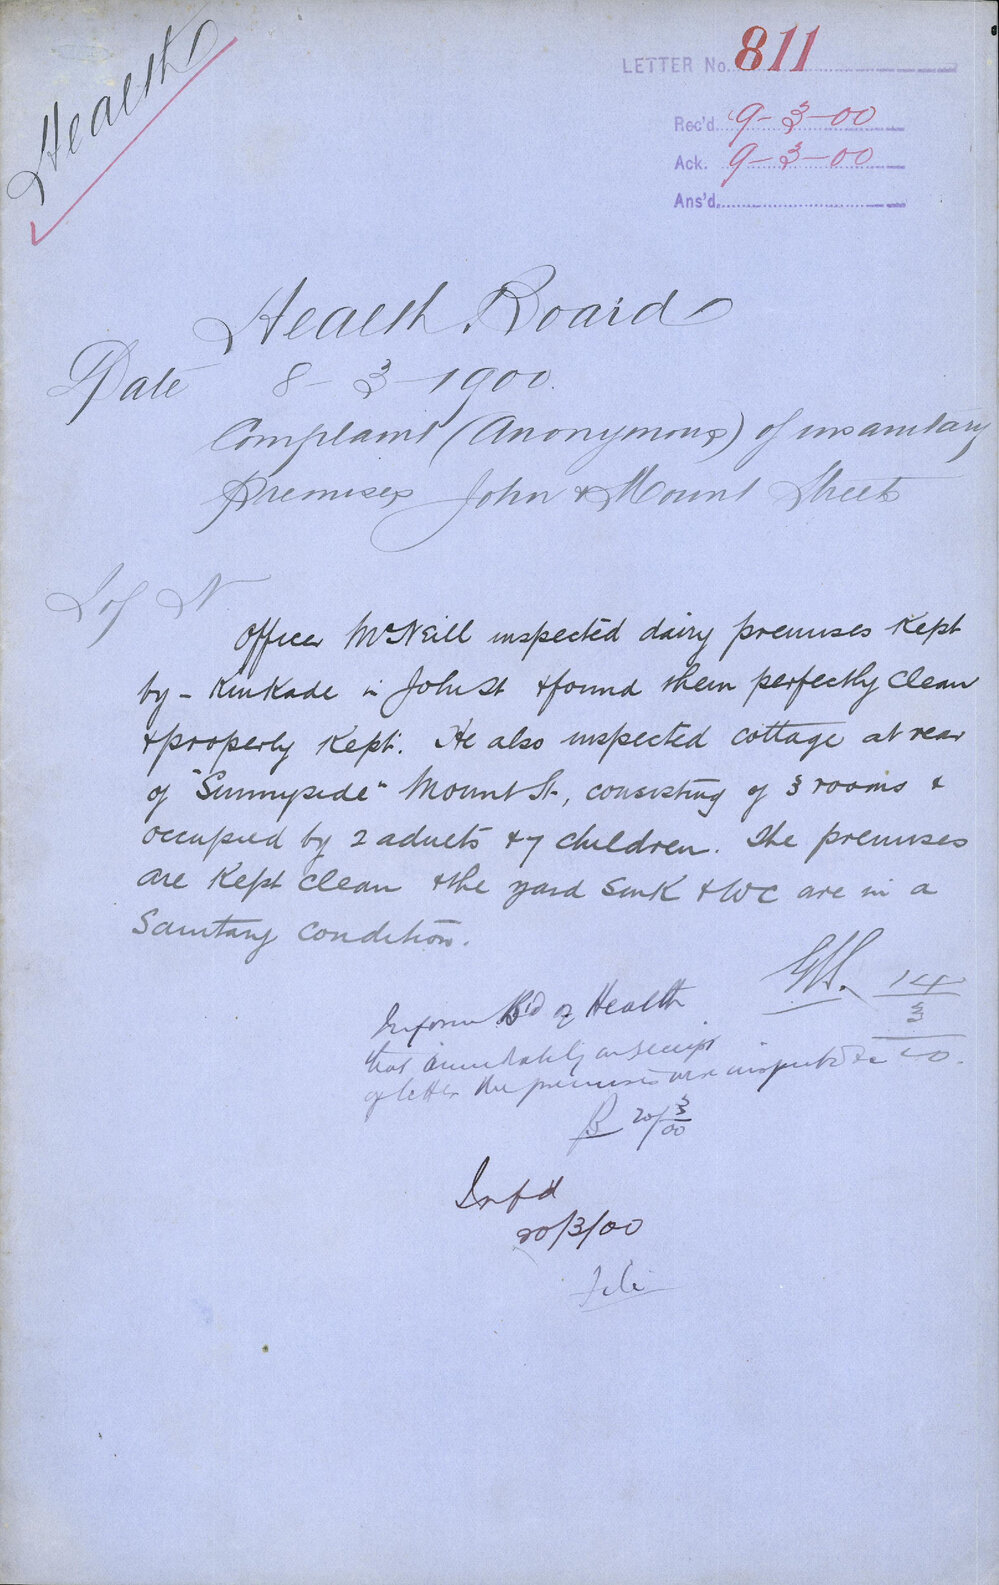 Health
LETTER No. 811
Rec'd. 9-3-00
Ack. 9-3-00
Ans'd.
Health Board
Date 8-3-1900.
Complaint (Anonymous) of insanitary
premises John & Mount Streets
I of N
Officer McNeill inspected dairy premises kept
by - Kinkade in John St & found them perfectly clean
& properly kept. He also inspected cottage at rear
of "Sunnyside" Mount St., consisting of 3 rooms &
occupied by 2 adults & 7 children. The premises
are kept clean & the yard sink & WC are in a
Sanitary condition.
14/3/00.
Inform B'd of Health
that immediately on receipt
of letter the premises were inspected &c
20/3/00
Inf'd
20/3/00
File